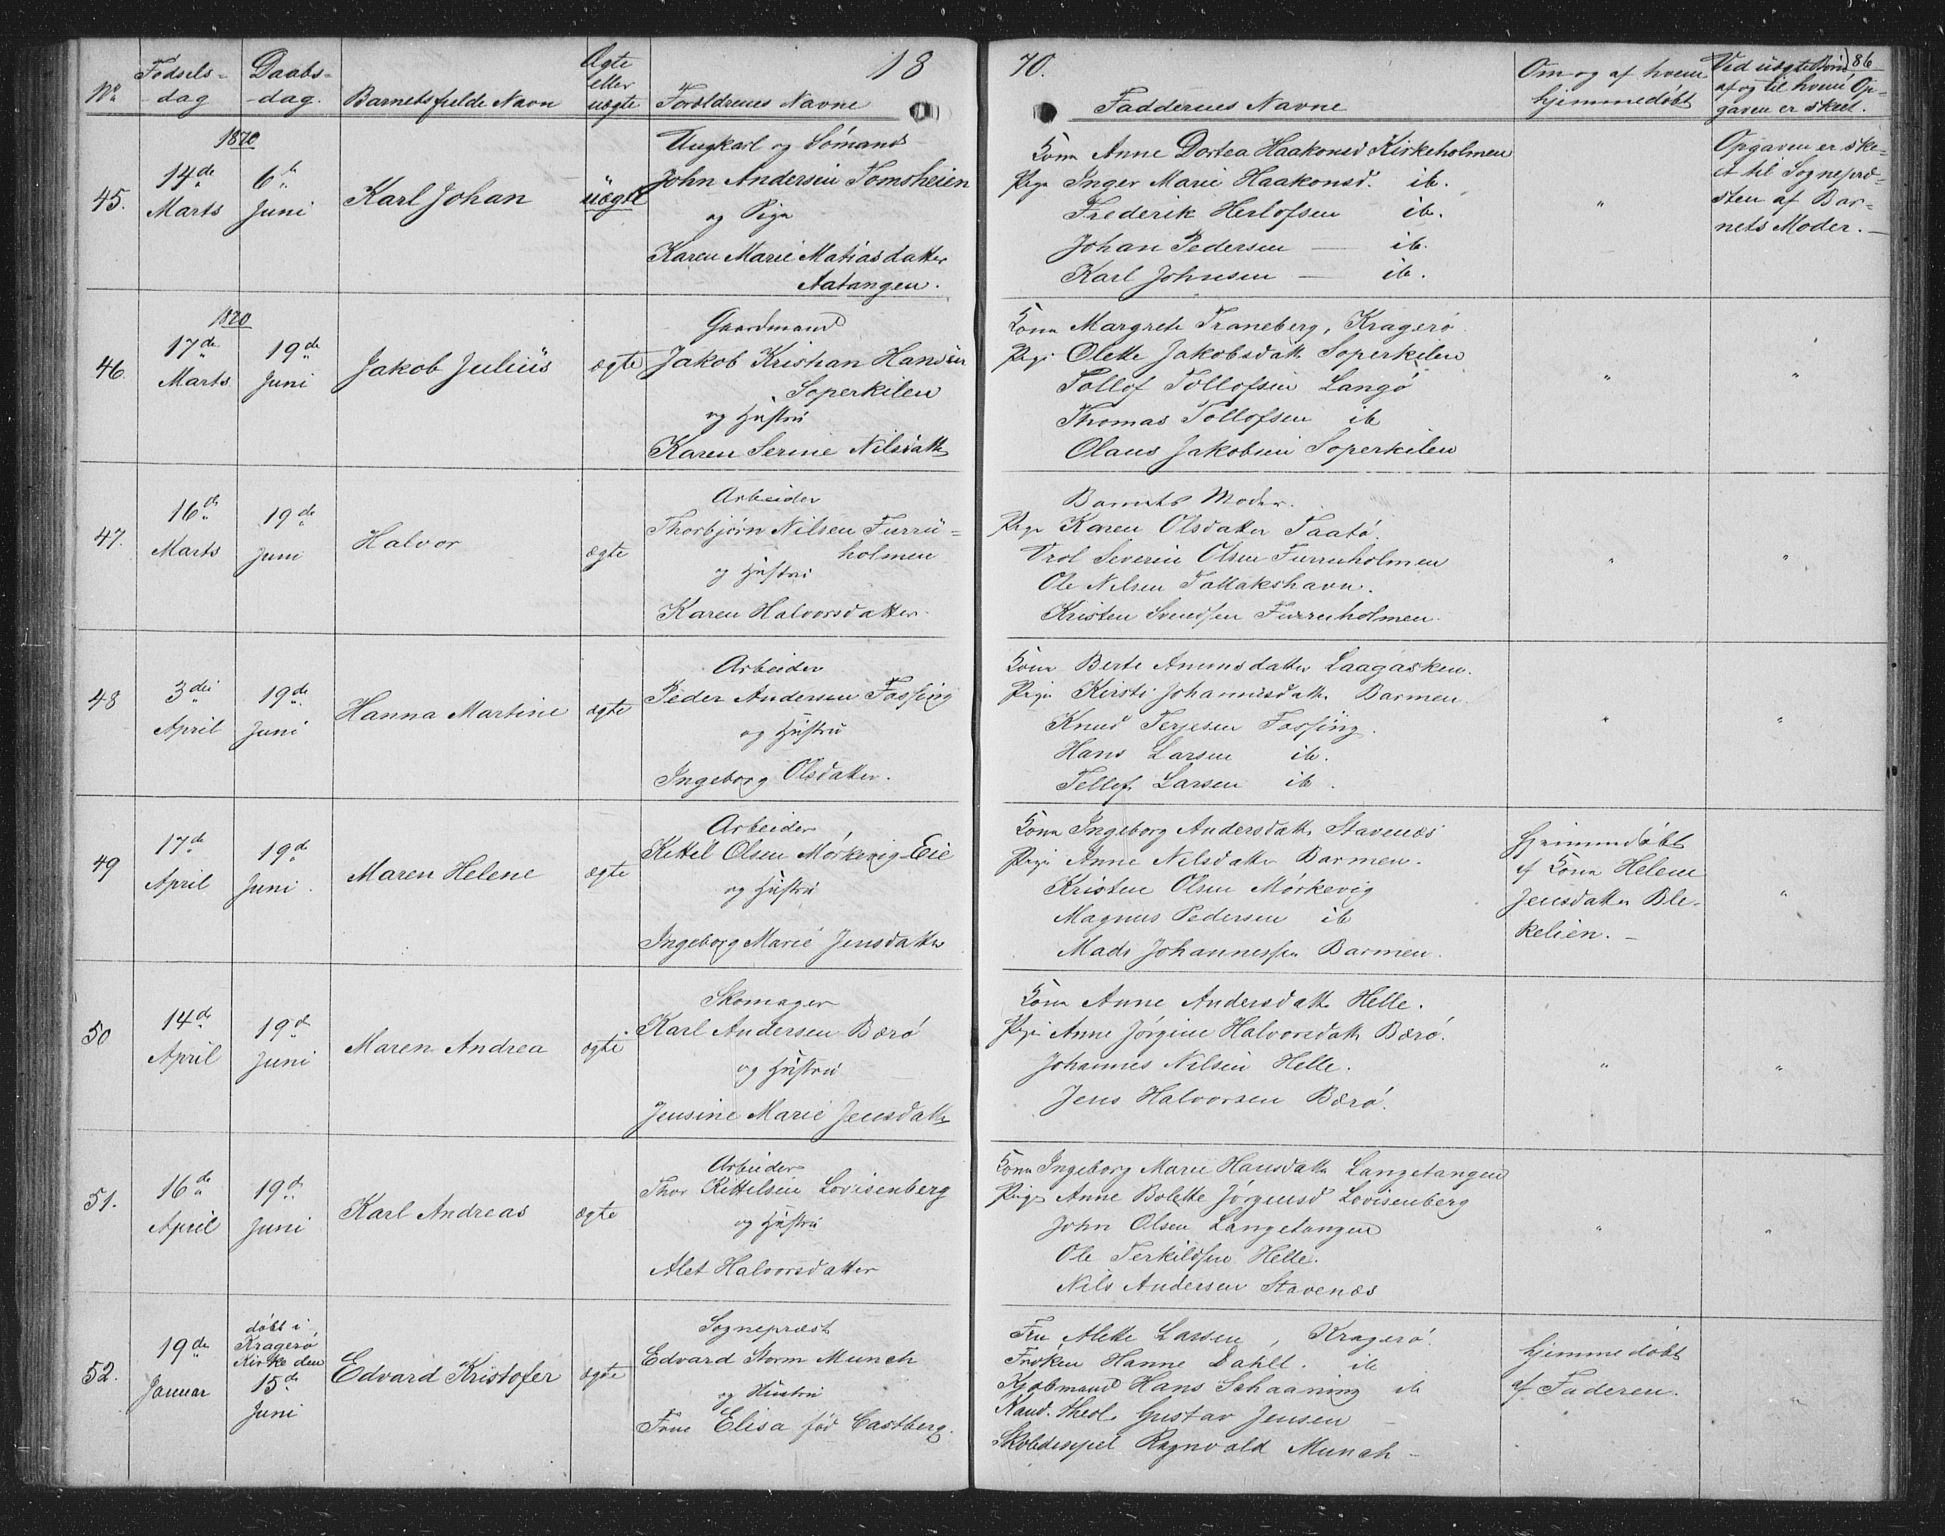 18 70. 86
No Fødsels-dag Daabs-dag. Barnets fulde Navn Ægte eller uægte Forældrenes Navne Faddernes Navne Om og af hvem hjemmedøbt Ved uægte Børn af og til hvem Opgaven er skeet.
1870
45. 14de Marts 6te Juni Karl Johan uægte
Ungkarl og Sømand
John Andersen Tomsheien
og Pige
Karen Marie Matiasdatter
Aatangen.
Kona Anne Dortea Haakonsd Kirkeholmen
Pige Inger Marie Haakonsd. ib.
Frederik Herlofsen ib.
Johan Pedersen — ib.
Karl Johnsen — ib.
"
Opgaven er ske-
et til Sognepræ-
sten af Bar-
nets Moder. —
1870
46. 17de Marts 19de Juni Jakob Julius ægte
Gaardmand
Jakob Kristian Hansen
Soperkilen
og Hustru
Karen Serine Nilsdatt
Kona Margrete Traneberg, Kragerø
Pige Olette Jakobsdatt Soperkilen
Tollof Tollofsen Langø
Thomas Tollofsen ib
Olaus Jakobsen Soperkilen
" "
47. 16de Marts 19de Juni Halvor ægte
Arbeider
Thorbjørn Nilsen Furru-
holmen
og Hustru
Karen Halvorsdatter.
Barnets Moder.
Pige Karen Olsdatter Taatø.
Severin Olsen Furruholmen
Ole Nilsen Tallakshavn.
Kristen Svendsen Furruholmen.
" "
48 3die April 19de Juni Hanna Martine ægte
Arbeider
Peder Andersen Fossing
og Hustru
Ingeborg Olsdatter.
Kona Berte Amunsdatter Laagasken.
Pige Kirsti Johannisdatt Barmen.
Knud Terjesen Fossing.
Hans Larsen ib.
Tellof Larsen ib.
" "
49 17de April 19de Juni. Maren Helene ægte
Arbeider
Kittel Olsen Mørkevig Eie
og Hustru
Ingeborg Marie Jensdatter
Kona Ingeborg Andersdatt Stavenæs
Pige Anne Nilsdatter Barmen.
Kristen Olsen Mørkevig
Magnus Pedersen ib
Mads Johannessen Barmen.
Hjemmedøbt
af Kona Helene
Jensdatter Ble-
kelien. —
"
50 14de April 19de Juni Maren Andrea ægte
Skomager
Karl Andersen Bærø
og Hustru
Jensine Marie Jensdatt
Kona Anne Andersdatt Helle.
Pige Anne Jørgine Halvorsdatt Bærø.
Johannes Nilsen Helle.
Jens Halvorsen Bærø.
" "
51. 16de April 19de Juni Karl Andreas ægte
Arbeider
Thor Kittelsen Lovisenberg
og Hustru
Alet Halvorsdatter
Kona Ingeborg Marie Hansdatt Langetangen
Pige Anne Bolette Jørgensd Lovisenberg
John Olsen Langetangen
Ole Terkildsen Helle.
Nils Andersen Stavenæs
" "
52. 19de Januar døbt i Kragerø Kirke den 15de Juni Edvard Kristofer ægte
Sognepræst
Edvard Storm Munch
og Hustru
Frue Elisa fød Castberg.
Fru Alette Larsen, Kragerø.
Frøken Hanne Dahll. ib
Kjøbmand Hans Schaaning ib
Kand. theol. Gustav Jensen —
Skoledisipel Ragnvald Munch —
hjemmedøbt
af Faderen.
"